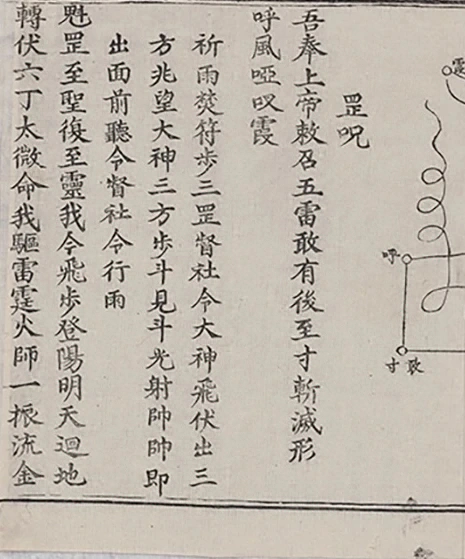 霆
呼
寸
敢
罡呪
吾奉上帝敕召五雷敢有後至寸斬滅形
呼風啞㕭霞
祈雨焚符步三罡督社令大神飛伏出三
方兆望大神三方步斗見斗光射帥帥即
出面前聽令督社令行雨
魁罡至聖復至靈我今飛步登陽明天迴地
轉伏六丁太微命我驅雷霆火師一振流金